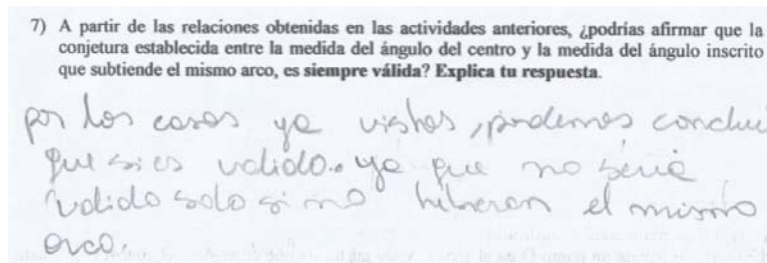 7) A partir de las relaciones obtenidas en las actividades anteriores, ¿podrías afirmar que la
conjetura establecida entre la medida del ángulo del centro y la medida del ángulo inscrito
que subtiende el mismo arco, es siempre válida? Explica tu respuesta.
por los casos ya vistos, podemos conclui
que si es valido. ya que no seria
valido solo si no tubieran el mismo
arco.